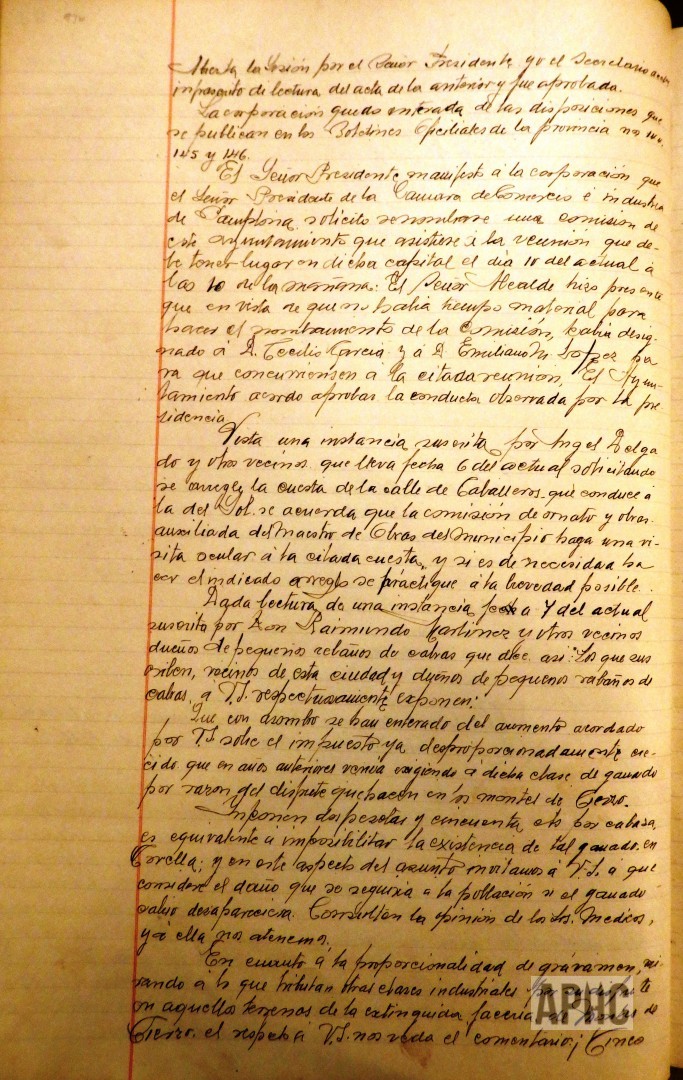 Abierta la Sesión por el Señor Presidente yo el Secretario
infrascrito dí lectura del acta de la anterior y fue aprobada.
La corporación quedo enterada de las disposiciones que
se publican en los Boletines Oficiales de la provincia nos
145 y 146.
El Señor Presidente manifestó á la corporación que
el Señor Presidente de la Camara de Comercio é industria
de Pamplona solicitó una comision de
este ayuntamiento que asistiese á la reunión que de-
be tener lugar en dicha capital el dia 10 del actual á
las 10 de la mañana: El Señor Alcalde hizo presente
que en vista de que no habia tiempo material para
hacer el nombramiento de la Comisión, habia desig-
nado á D. Cecilio Garcia y á D. Emiliano Lopez pa
ra que concurriesen á la citada reunion, El Ayun-
tamiento acordó aprobar la conducta observada por la pre-
sidencia
Vista una instancia suscrita por Angel Delga
do y otros vecinos que lleva fecha 6 del actual solicitando
se arregle la cuesta de la calle de Caballeros que conduce á
la del Sol. se acuerda que la comisión de ornato y obras
auxiliada del Maestro de Obras del Municipio haga una vi-
sita ocular á la citada cuesta, y si es de necesidad ha
cer el indicado arreglo se práctique á la brevedad posible.
Dada lectura de una instancia fecha 7 del actual
suscrito por Don Raimundo Martinez y otros vecinos
dueños de pequeños rebaños de cabras que dice asi: "Los que sus
criben, vecinos de esta ciudad y dueños de pequeños rabaños de
cabras, a V.S. respectuosamente exponen:
Que con asombo se han enterado del aumento acordado
por V.S. sobre el impuesto ya desproporcionadamente cre-
cido que en años anteriores venia exigiendo á dicha clase de ganado
por razon del disfrute que hacen en los montes de Cierzo.
Imponen dos pesetas y cincuenta cts por cabeza,
es equivalente á imposibilitar la existencia de tal ganado en
Corella; y en este aspecto del asunto invitamos á V.S. á que
considere el daño que se seguiria a la población si el ganado
cabrio desapareciera. Consulten la opinión de los Srs. Medicos,
y á ella nos atenemos,
En cuanto á la proporcionalidad de grávamen, mi-
rando á lo que tributan otras clases industriales
en aquellos terrenos de la extinguida faceria de Montes de
Cierzo. el respeto á V.S. nos veda el comentario; ¡Cinco
APHC